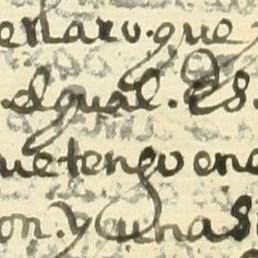 enaro. que
. el qual. Es.
ue tengo en e
on. y una si